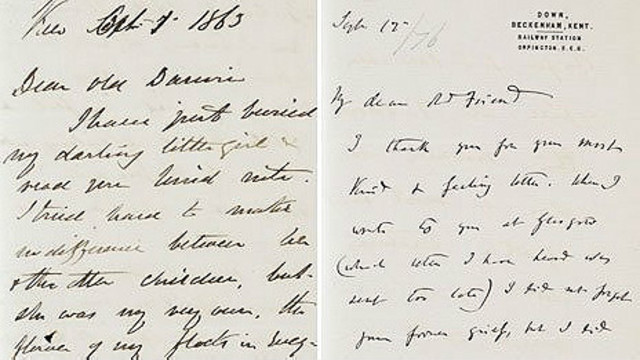 Kew Sept. 1863
Dear old Darwin
I have just buried
my darling little girl &
read your kind note.
I tried hard to make
no difference between her
& the other children, but
she was my very own, the
flower of my flock in every
Sept 12/76
DOWN,
BECKENHAM, KENT.
RAILWAY STATION
ORPINGTON. S.E.R.
My dear old Friend
I thank you for your most
kind & feeling letter. When I
wrote to you at Glasgow
(which letter I have heard was
sent too late) I did not forget
your former grief, but I did